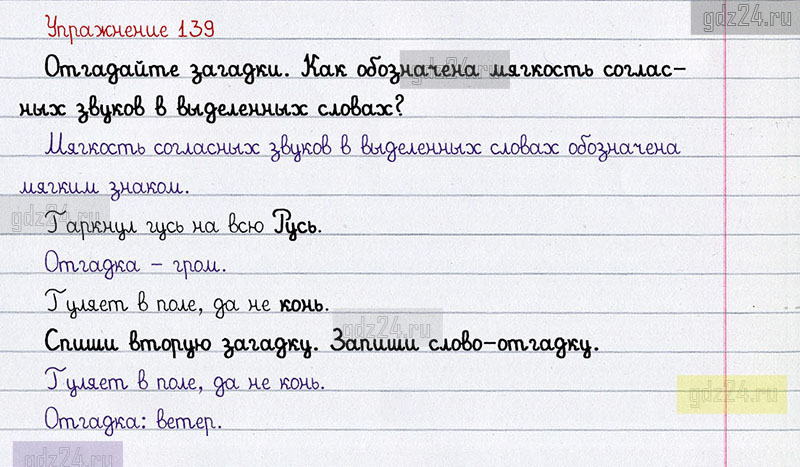 gdz24.ru
Упражнение 139
Отгадайте загадки. Как обозначена мягкость соглас-
gdz24.ru
ных звуков в выделенных словах?
Мягкость согласных звуков в выделенных словах обозначена
мягким знаком.
gdz24.ru
Гаркнул гусь на всю Русь.
Отгадка – гром.
Гуляет в поле, да не конь.
gdz24.ru
Спиши вторую загадку. Запиши слово-отгадку.
Гуляет в поле, да не конь.
gdz24.ru
Отгадка: ветер.
gdz24.ru